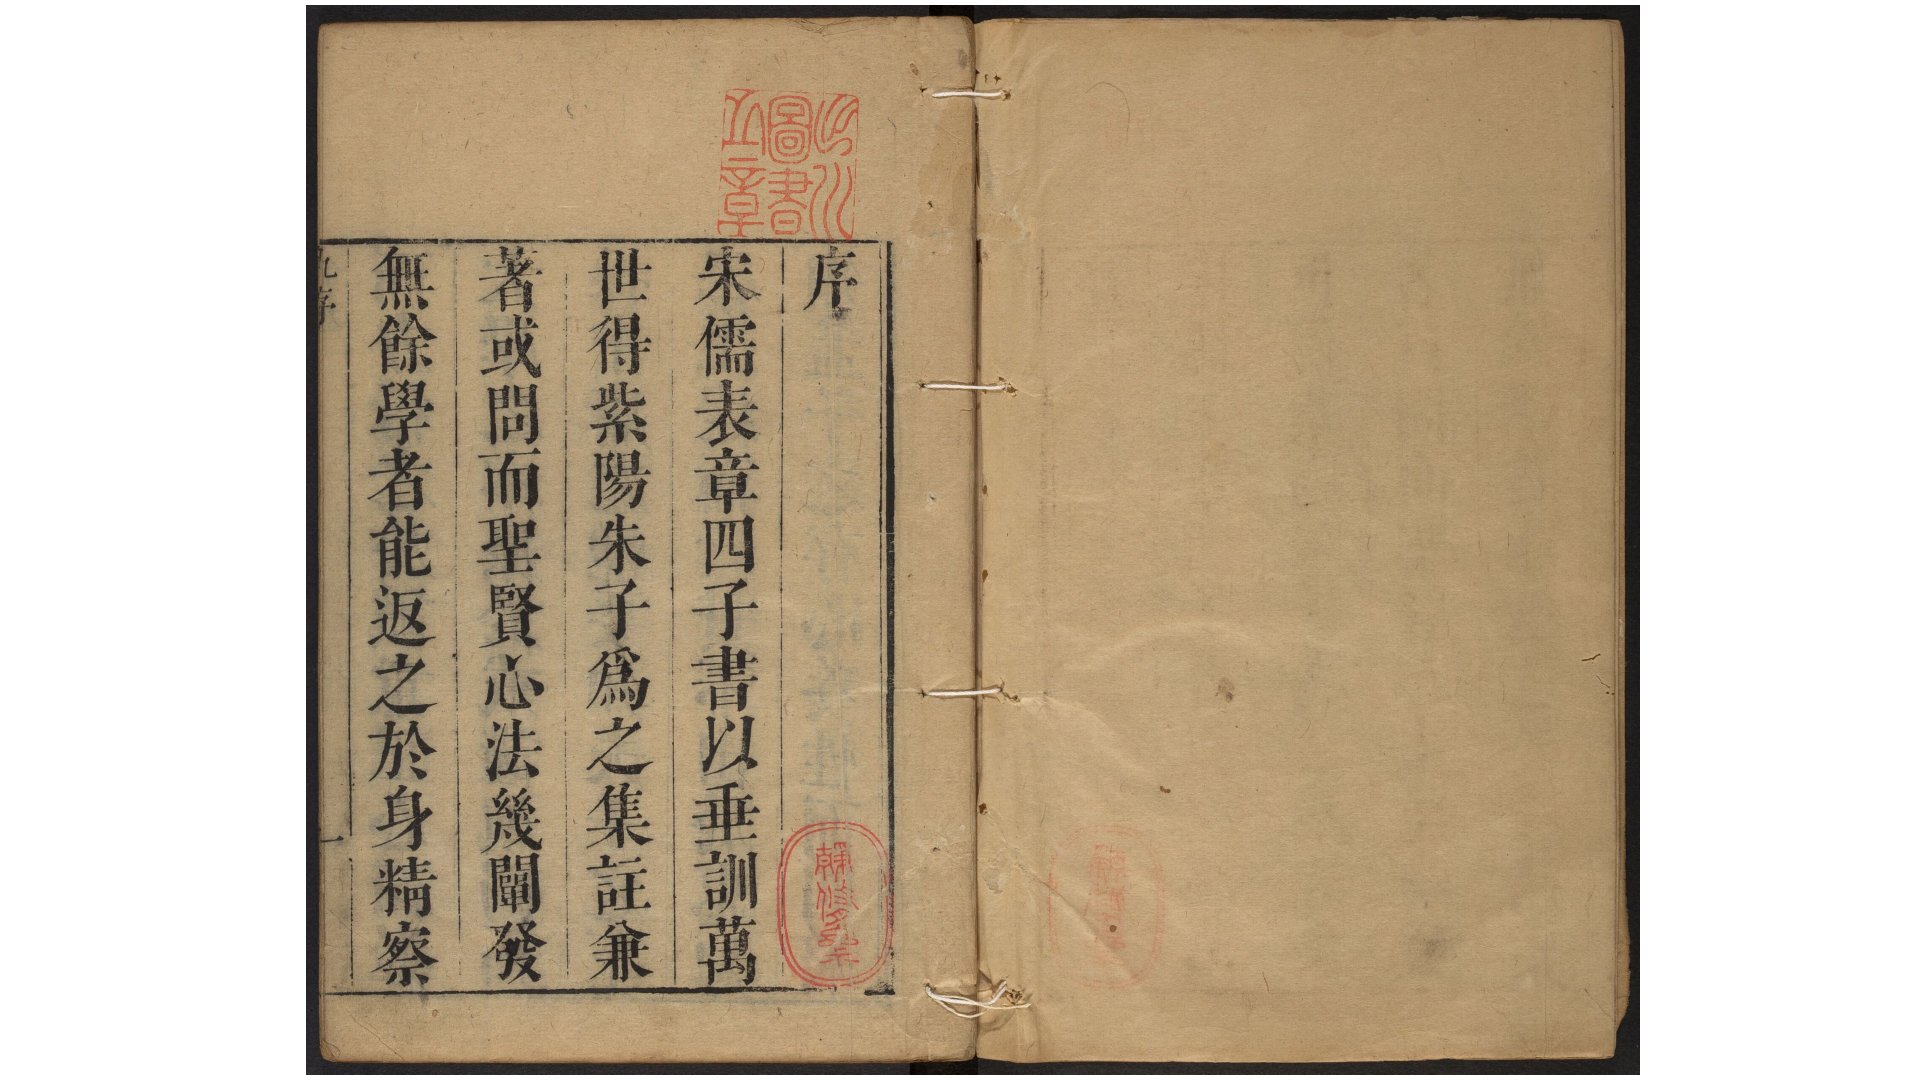 序
宋儒表章四子書以垂訓萬
世得紫陽朱子爲之集註兼
著或問而聖賢心法幾闡發
無餘學者能返之於身精察
圖書
章